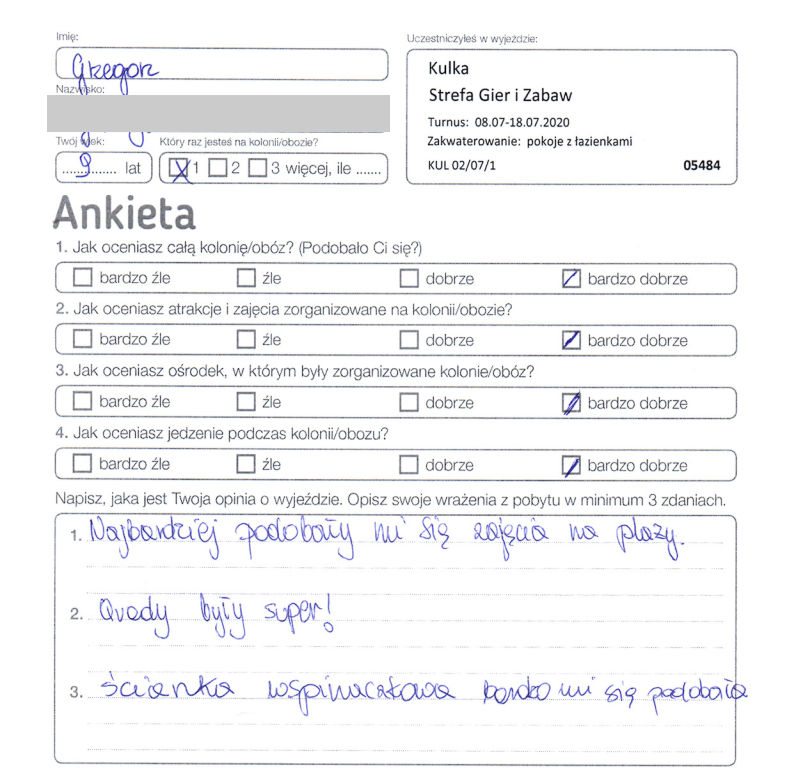 Imię:
Uczestniczyłeś w wyjeździe:
Grzegorz
Kulka
Nazwisko:
Strefa Gier i Zabaw
Turnus: 08.07-18.07.2020
Twój wiek:
Który raz jesteś na kolonii/obozie?
Zakwaterowanie: pokoje z łazienkami
9 lat
1 2 3 więcej, ile .......
KUL 02/07/1 05484
Ankieta
1. Jak oceniasz całą kolonię/obóz? (Podobało Ci się?)
bardzo źle źle dobrze bardzo dobrze
2. Jak oceniasz atrakcje i zajęcia zorganizowane na kolonii/obozie?
bardzo źle źle dobrze bardzo dobrze
3. Jak oceniasz ośrodek, w którym były zorganizowane kolonie/obóz?
bardzo źle źle dobrze bardzo dobrze
4. Jak oceniasz jedzenie podczas kolonii/obozu?
bardzo źle źle dobrze bardzo dobrze
Napisz, jaka jest Twoja opinia o wyjeździe. Opisz swoje wrażenia z pobytu w minimum 3 zdaniach.
1. Najbardziej podobały mi się zajęcia na plaży.
2. Quady były super!
3. ścianka wspinaczkowa bardzo mi się podobała